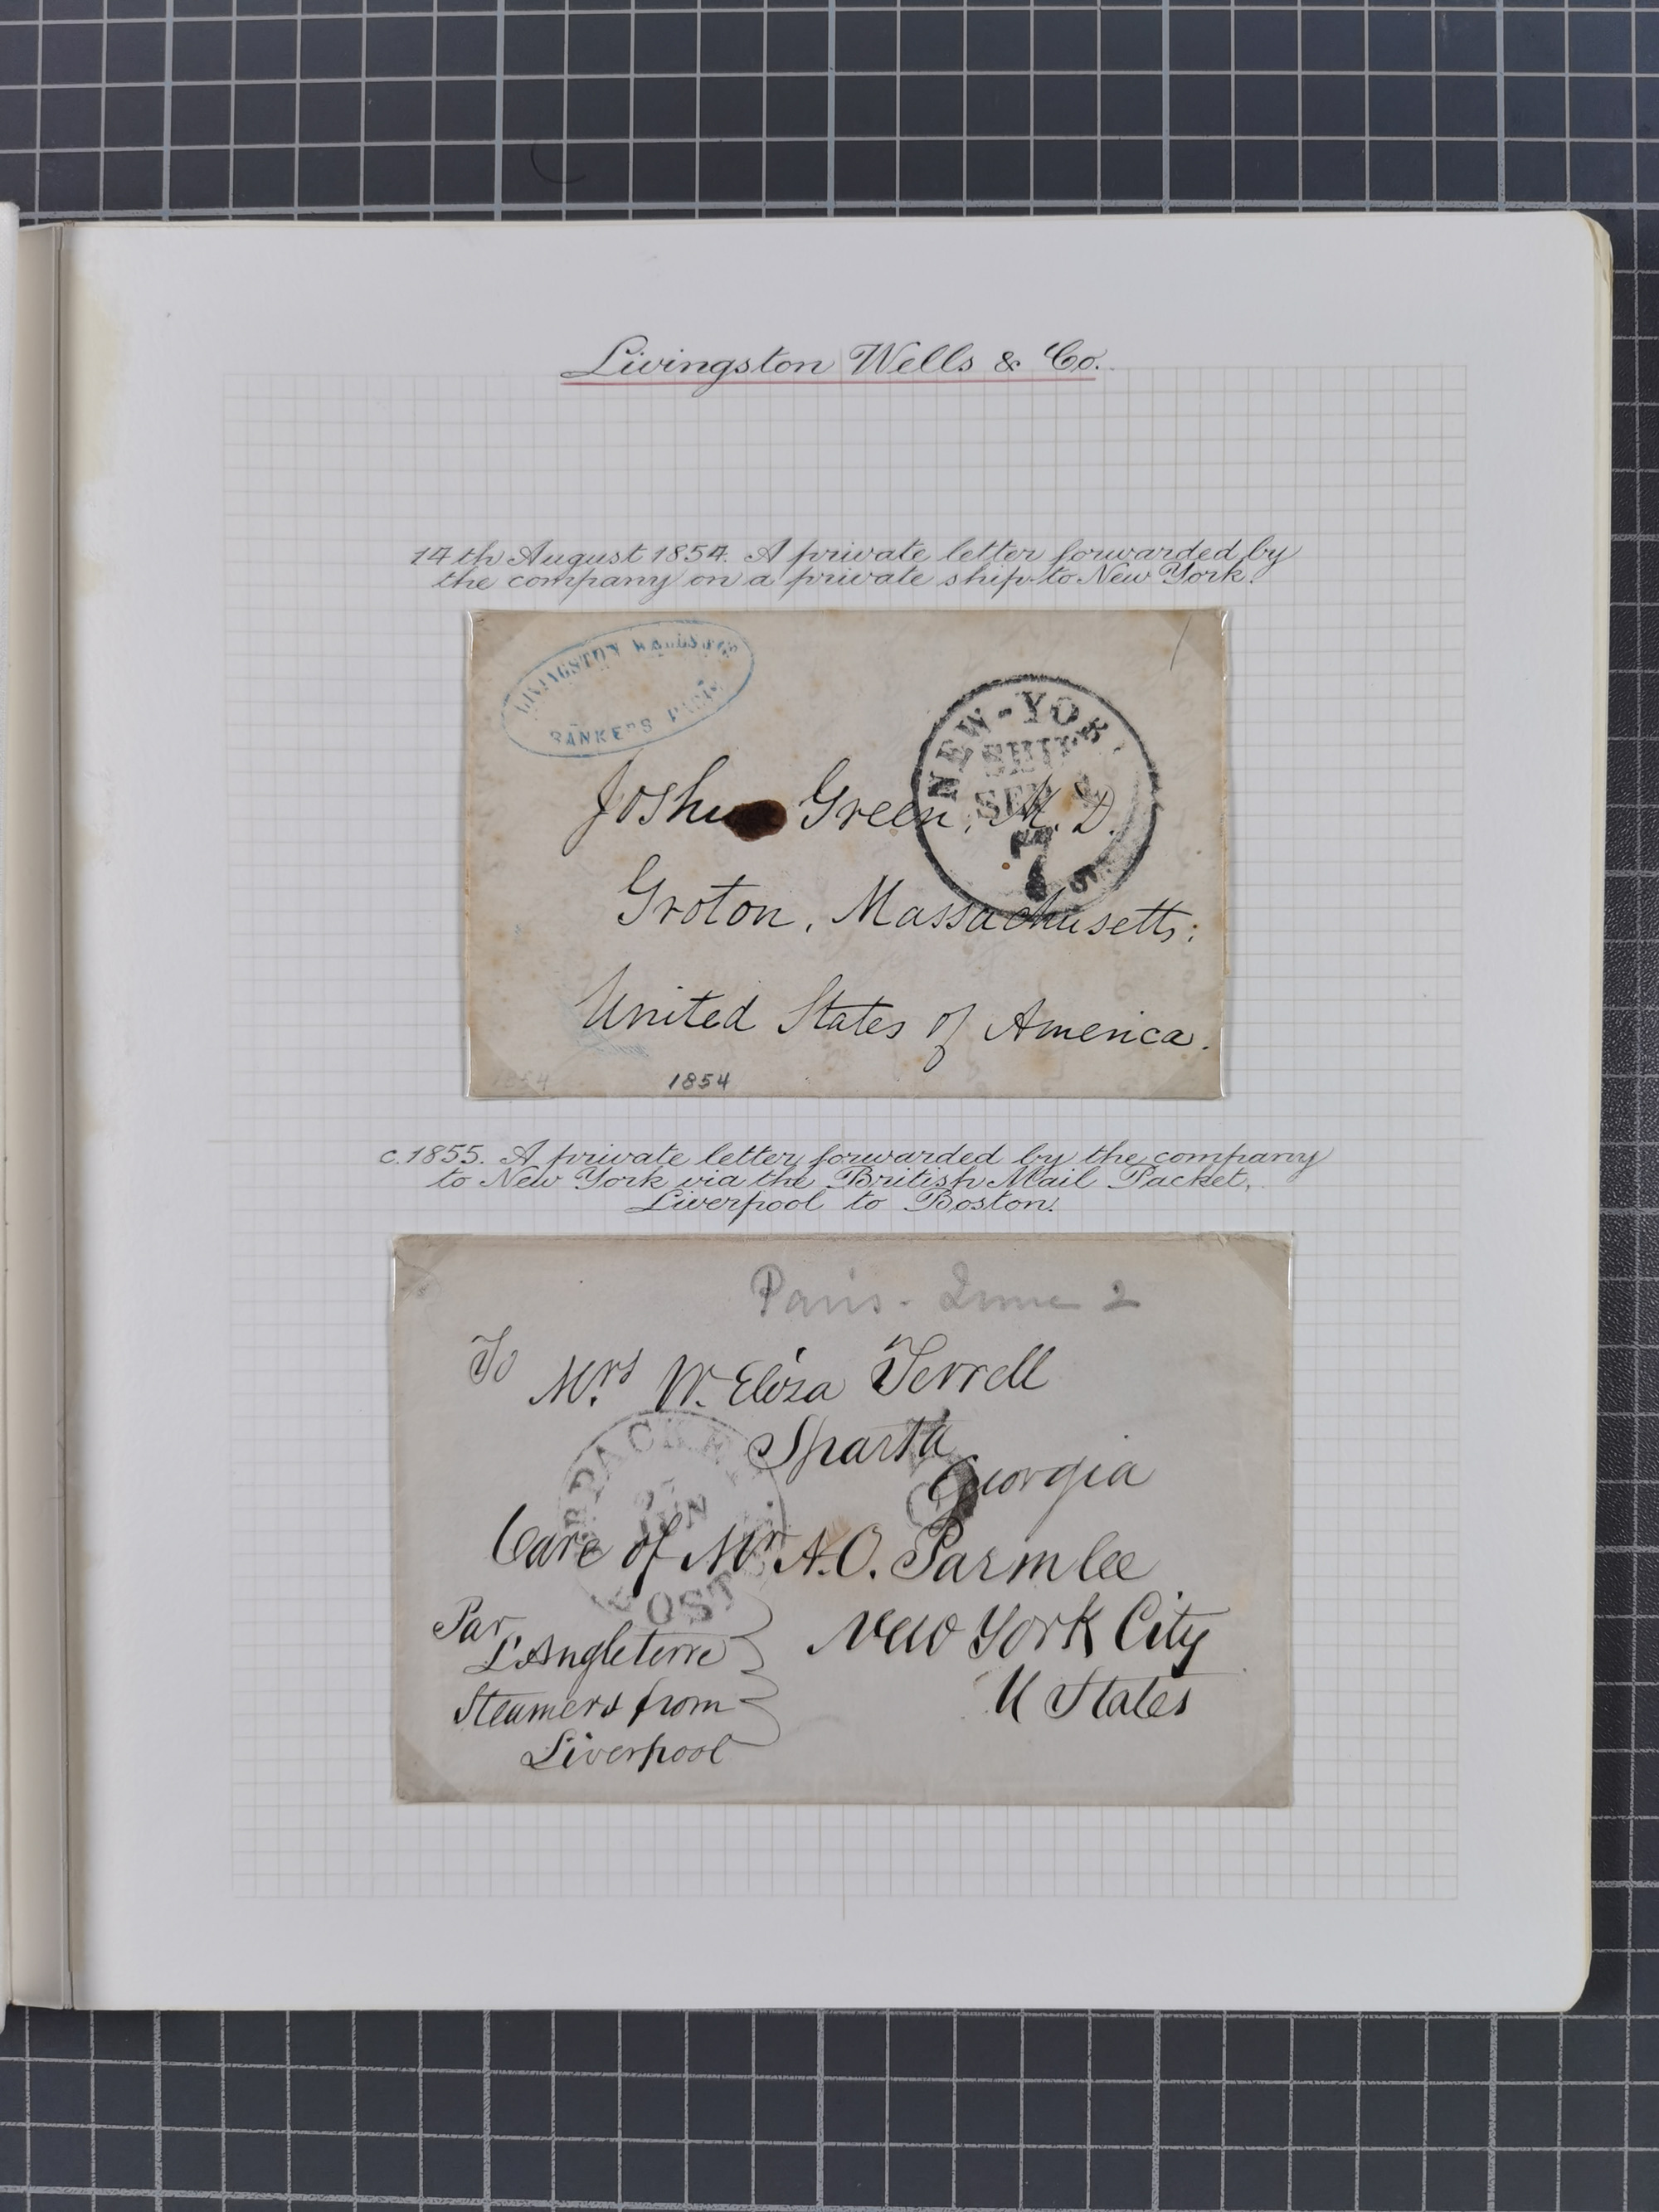 Livingston Wells & Co.
14th August 1854. A private letter forwarded by
the company on a private ship to New York.
LIVINGSTON
BANKERS PARIS
NEW-YORK
SHIP
SEP
7
Joshua Green, M.D.
Groton, Massachusetts;
United States of America.
1854
1854
c.1855. A private letter forwarded by the company
to New York via the British Mail Packet,
Liverpool to Boston.
Paris - June 2
To Mrs W. Eliza Terrell
Sparta
Georgia
BR PACKET
JUN
BOSTON
Care of Mr A.O. Parmlee
New York City
U States
Par
L'Angleterre
Steamers from
Liverpool